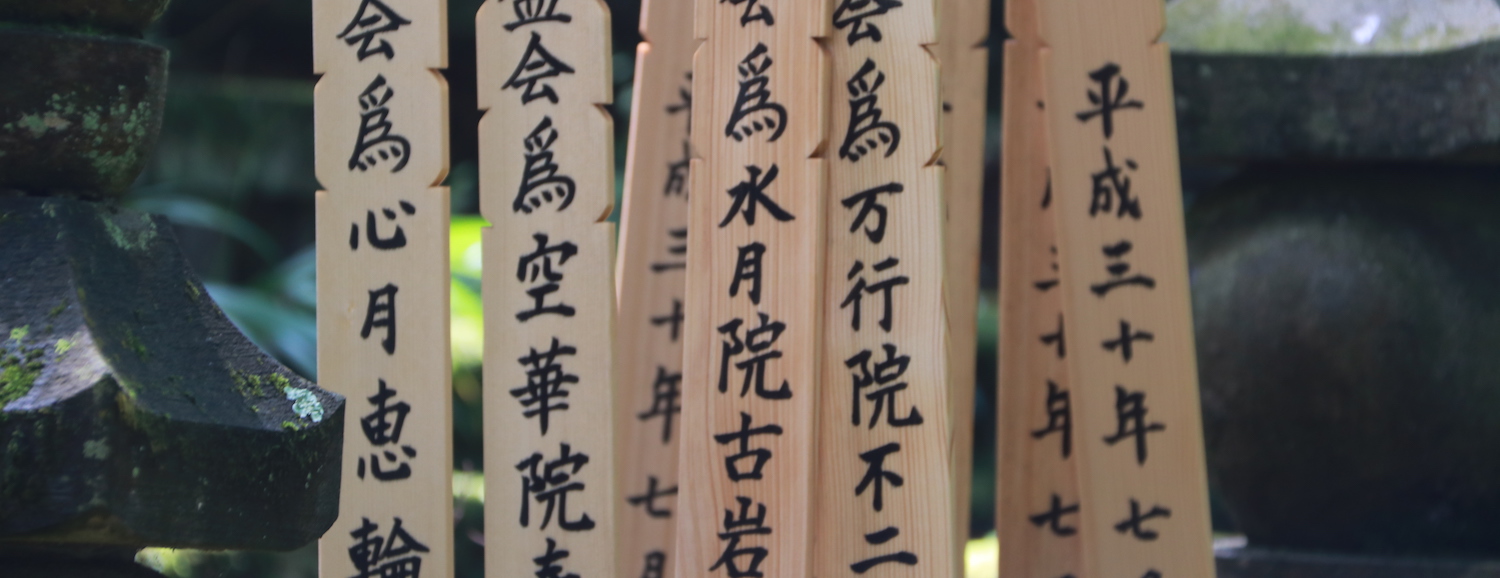 平成三十年七
十年七
会爲万行院不二
会爲水月院古岩
平成三十年七月
盆会爲空華院
会爲心月恵輪